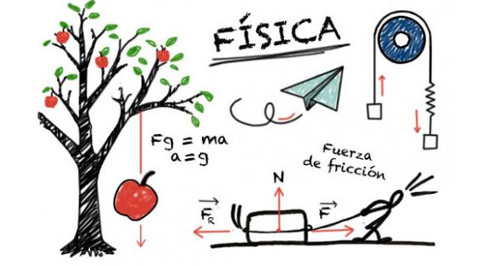 FÍSICA
Fg = ma
a = g
Fuerza
de fricción
N
F⃗R
F⃗